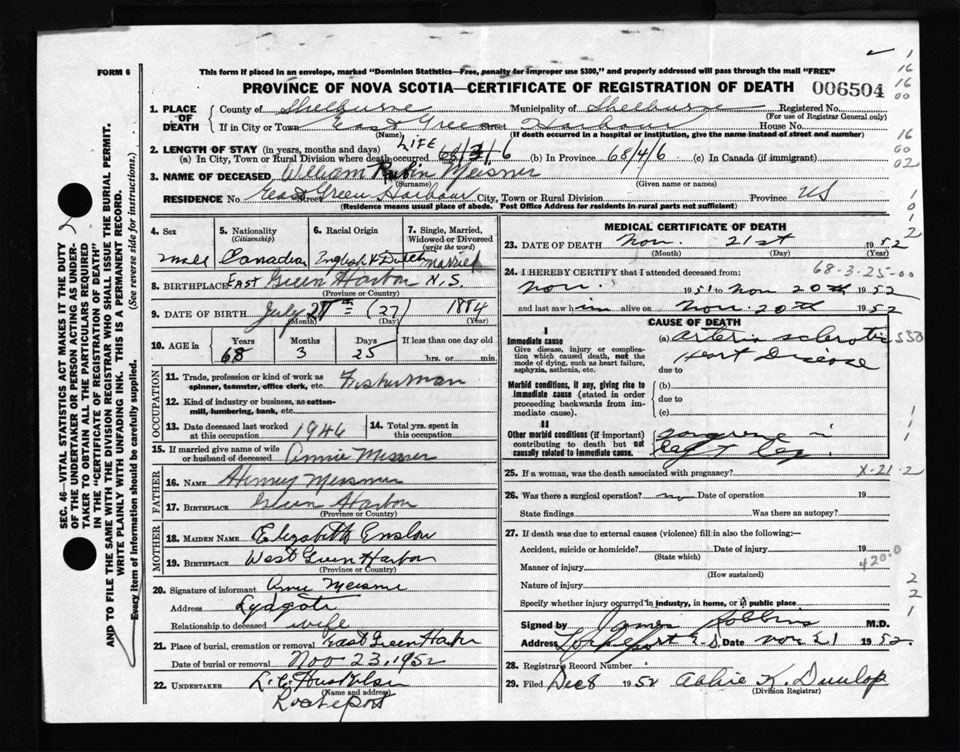 FORM 6
This form if placed in an envelope, marked "Dominion Statistics—Free, penalty for improper use $300," and properly addressed will pass through the mail "FREE"
PROVINCE OF NOVA SCOTIA—CERTIFICATE OF REGISTRATION OF DEATH 006504
1. PLACE OF DEATH County of Shelburne Municipality of Shelburne Registered No.
(For use of Registrar General only)
If in City or Town East Green Street Harbour House No.
(Name) (If death occurred in a hospital or institution, give the name instead of street and number)
2. LENGTH OF STAY (in years, months and days) LIFE
(a) In City, Town or Rural Division where death occurred 68/3/6 (b) In Province 68/4/6 (c) In Canada (if immigrant)
3. NAME OF DECEASED William Rubin Meisner
(Surname) (Given name or names)
RESIDENCE No. East Green Harbour Street City, Town or Rural Division Province
(Residence means usual place of abode. Post Office Address for residents in rural parts not sufficient)
4. Sex
male
5. Nationality (Citizenship)
Canadian
6. Racial Origin
English & Dutch
7. Single, Married, Widowed or Divorced (write the word)
Married
8. BIRTHPLACE East Green Harbor N.S.
(Province or Country)
9. DATE OF BIRTH July 27 (27) 1884
(Month) (Day) (Year)
10. AGE in Years Months Days If less than one day old
68 3 25 hrs. or min.
OCCUPATION
11. Trade, profession or kind of work as spinner, teamster, office clerk, etc. Fisherman
12. Kind of industry or business, as cotton-mill, lumbering, bank, etc.
13. Date deceased last worked at this occupation 1946
14. Total yrs. spent in this occupation
15. If married give name of wife or husband of deceased Annie Misner
FATHER
16. NAME Henry Meisner
17. BIRTHPLACE Green Harbor
(Province or Country)
MOTHER
18. MAIDEN NAME Elizabeth Enslow
19. BIRTHPLACE West Green Harbor
(Province or Country)
20. Signature of informant Meisner
Address Lydgate
Relationship to deceased wife
21. Place of burial, cremation or removal East Green Harbor
Date of burial or removal Nov 23, 1952
22. UNDERTAKER L. C.
(Name and address)
MEDICAL CERTIFICATE OF DEATH
23. DATE OF DEATH Nov. 21st 1952
(Month) (Day) (Year)
68-3-25-00
24. I HEREBY CERTIFY that I attended deceased from:
Nov. 1951 to Nov 20th 1952
and last saw him alive on Nov. 20th 1952
CAUSE OF DEATH
I
Immediate cause
Give disease, injury or complication which caused death, not the mode of dying, such as heart failure, asphyxia, asthenia, etc.
(a) arterio sclerotic
Heart Disease
due to
Morbid conditions, if any, giving rise to immediate cause (stated in order proceeding backwards from immediate cause).
(b)
due to
(c)
II
Other morbid conditions (if important) contributing to death but not causally related to immediate cause.
gangrene
leg
25. If a woman, was the death associated with pregnancy? X-21-2
26. Was there a surgical operation? no Date of operation 19
State findings Was there an autopsy?
27. If death was due to external causes (violence) fill in also the following:—
Accident, suicide or homicide? Date of injury 19
(State which)
Manner of injury 420-0
(How sustained)
Nature of injury
Specify whether injury occurred in industry, in home, or in public place
Signed by James Robbins M.D.
Address Lockeport N.S. Date Nov 21 1952
28. Registrar's Record Number
29. Filed Dec 8 1952 Abbie K. Dunlop
(Division Registrar)
SEC. 46—VITAL STATISTICS ACT MAKES IT THE DUTY
OF THE UNDERTAKER OR PERSON ACTING AS UNDER-
TAKER TO OBTAIN ALL THE PARTICULARS REQUIRED
IN THE "CERTIFICATE OF REGISTRATION OF DEATH"
AND TO FILE THE SAME WITH THE DIVISION REGISTRAR WHO SHALL ISSUE THE BURIAL PERMIT.
WRITE PLAINLY WITH UNFADING INK. THIS IS A PERMANENT RECORD.
Every item of information should be carefully supplied. (See reverse side for instructions.)